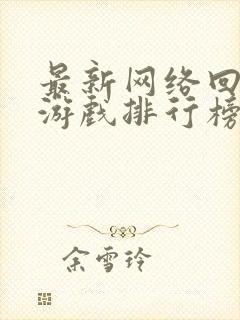 最新网络回
游戏排行榜
余雪玲